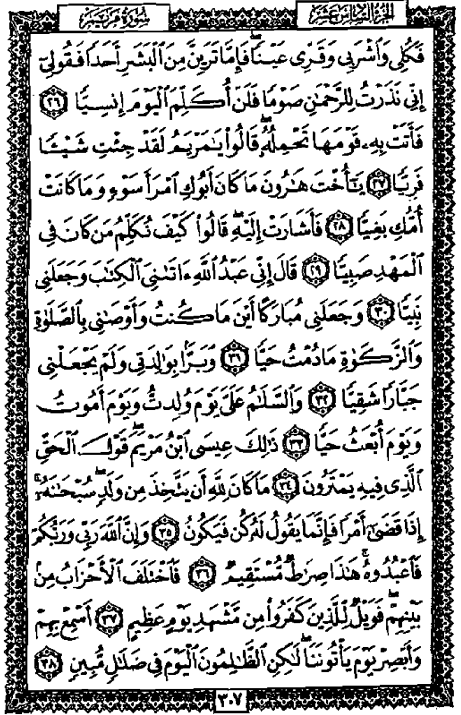 الجزء السادس عشر
سورة مريم
فَكُلِي وَٱشْرَبِي وَقَرِّي عَيْنًا ۖ فَإِمَّا تَرَيِنَّ مِنَ ٱلْبَشَرِ أَحَدًا فَقُولِيٓ
إِنِّي نَذَرْتُ لِلرَّحْمَٰنِ صَوْمًا فَلَنْ أُكَلِّمَ ٱلْيَوْمَ إِنسِيًّا ٢٦
فَأَتَتْ بِهِۦ قَوْمَهَا تَحْمِلُهُۥ ۖ قَالُوا۟ يَٰمَرْيَمُ لَقَدْ جِئْتِ شَيْـًٔا
فَرِيًّا ٢٧ يَٰٓأُخْتَ هَٰرُونَ مَا كَانَ أَبُوكِ ٱمْرَأَ سَوْءٍ وَمَا كَانَتْ
أُمُّكِ بَغِيًّا ٢٨ فَأَشَارَتْ إِلَيْهِ ۖ قَالُوا۟ كَيْفَ نُكَلِّمُ مَن كَانَ فِي
ٱلْمَهْدِ صَبِيًّا ٢٩ قَالَ إِنِّي عَبْدُ ٱللَّهِ ءَاتَىٰنِيَ ٱلْكِتَٰبَ وَجَعَلَنِي
نَبِيًّا ٣٠ وَجَعَلَنِي مُبَارَكًا أَيْنَ مَا كُنتُ وَأَوْصَٰنِي بِٱلصَّلَوٰةِ
وَٱلزَّكَوٰةِ مَا دُمْتُ حَيًّا ٣١ وَبَرًّۢا بِوَٰلِدَتِي وَلَمْ يَجْعَلْنِي
جَبَّارًا شَقِيًّا ٣٢ وَٱلسَّلَٰمُ عَلَيَّ يَوْمَ وُلِدتُّ وَيَوْمَ أَمُوتُ
وَيَوْمَ أُبْعَثُ حَيًّا ٣٣ ذَٰلِكَ عِيسَى ٱبْنُ مَرْيَمَ ۚ قَوْلَ ٱلْحَقِّ
ٱلَّذِي فِيهِ يَمْتَرُونَ ٣٤ مَا كَانَ لِلَّهِ أَن يَتَّخِذَ مِن وَلَدٍ ۖ سُبْحَٰنَهُۥٓ ۚ
إِذَا قَضَىٰٓ أَمْرًا فَإِنَّمَا يَقُولُ لَهُۥ كُن فَيَكُونُ ٣٥ وَإِنَّ ٱللَّهَ رَبِّي وَرَبُّكُمْ
فَٱعْبُدُوهُ ۚ هَٰذَا صِرَٰطٌ مُّسْتَقِيمٌ ٣٦ فَٱخْتَلَفَ ٱلْأَحْزَابُ مِنۢ
بَيْنِهِمْ ۖ فَوَيْلٌ لِّلَّذِينَ كَفَرُوا۟ مِن مَّشْهَدِ يَوْمٍ عَظِيمٍ ٣٧ أَسْمِعْ بِهِمْ
وَأَبْصِرْ يَوْمَ يَأْتُونَنَا ۖ لَٰكِنِ ٱلظَّٰلِمُونَ ٱلْيَوْمَ فِي ضَلَٰلٍ مُّبِينٍ ٣٨
٣٠٧